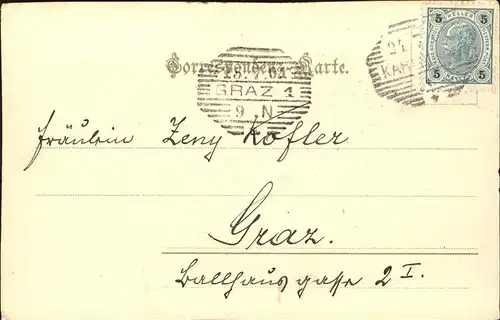 Correspondenz-Karte.
GRAZ 1
9 N
5 HELLER 5
5 5
Fräulein Zeny Kofler
Graz.
Ballhausgasse 2 I.